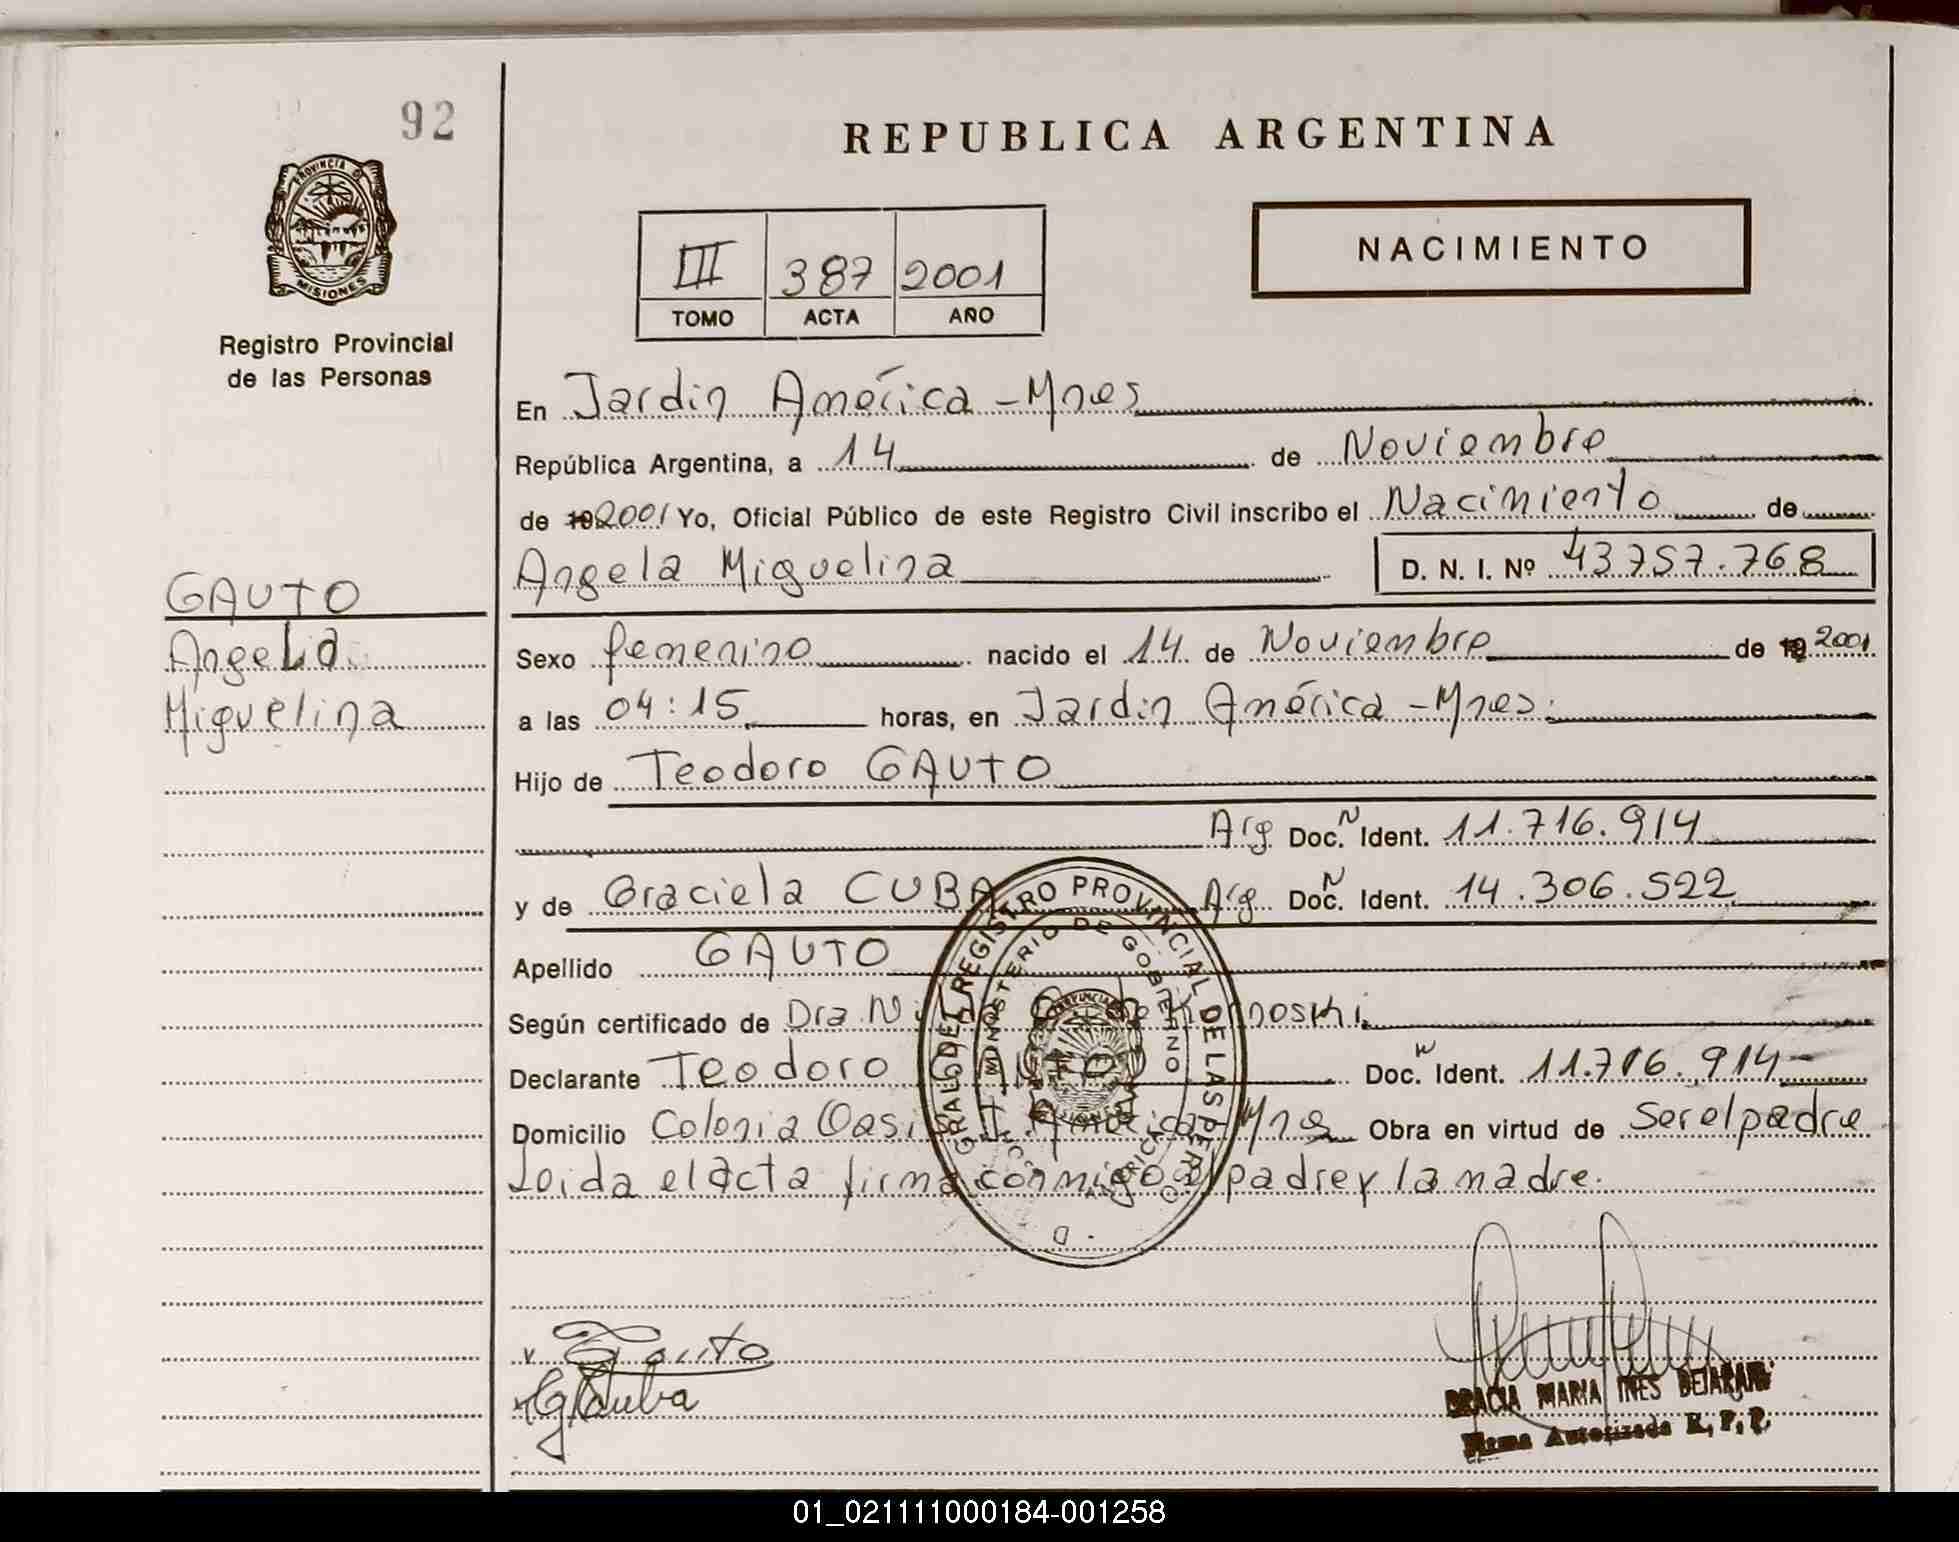 92
REPUBLICA ARGENTINA
PROVINCIA DE
MISIONES
Registro Provincial
de las Personas
III 387 2001
TOMO ACTA AÑO
NACIMIENTO
En Jardin América - Mnes
República Argentina, a 14 de Noviembre
de 19 2001 Yo, Oficial Público de este Registro Civil inscribo el Nacimiento de
Angela Miguelina D. N. I. Nº 43.757.768
GAUTO
Angela
Miguelina
Sexo femenino nacido el 14 de Noviembre de 19 2001
a las 04:15 horas, en Jardin América - Mnes.
Hijo de Teodoro GAUTO
Arg Doc. N Ident. 11.716.914
y de Graciela CUBA Arg Doc. N Ident. 14.306.522
Apellido GAUTO
Según certificado de Dra.
Declarante Teodoro GAUTO Doc. N Ident. 11.716.914
Domicilio Colonia Oasis América Mnes Obra en virtud de Ser el padre
Leida el acta firma conmigo el padre y la madre.
GRAL DEL REGISTRO PROVINCIAL DE LAS PERSO
MINISTERIO DE GOBIERNO
Gauto
GCuba
GRACIA MARIA INES BEJARANO
Firma Autorizada R. P. P.
01_021111000184-001258